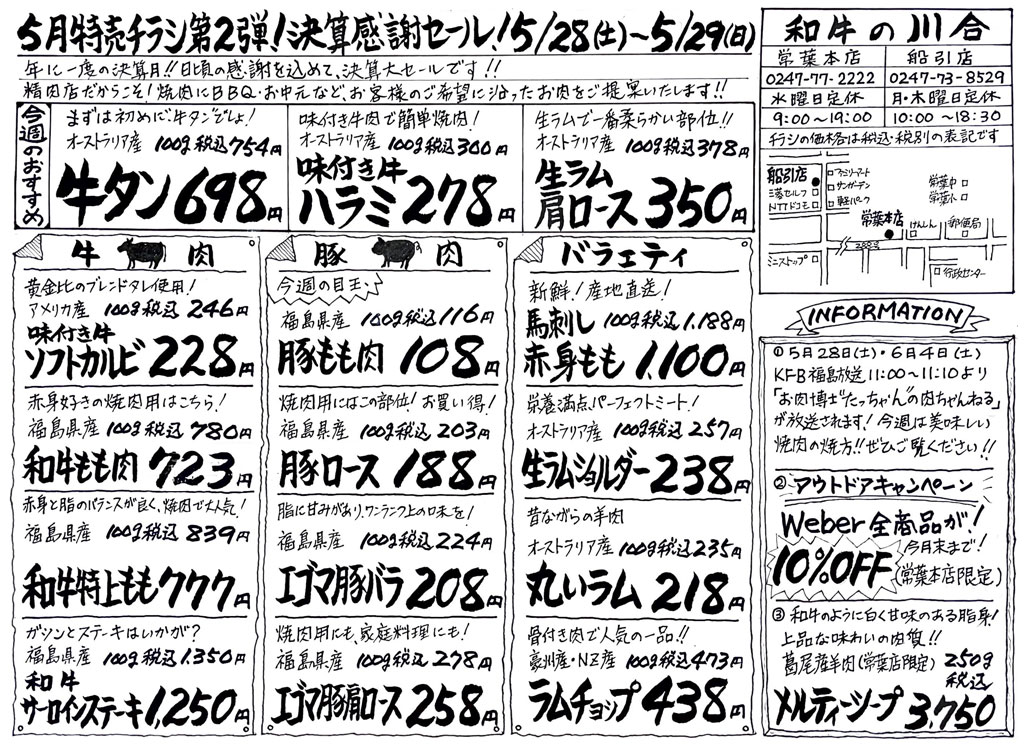 5月特売チラシ第2弾!決算感謝セール!5/28(土)~5/29(日)
年に一度の決算月!!日頃の感謝を込めて、決算大セールです!!
精肉店だからこそ!焼肉にBBQ・お中元など、お客様のご希望に沿ったお肉をご提案いたします!!
今週のおすすめ
まずは初めに牛タンでしょ!
オーストラリア産 100g税込754円
牛タン698円
味付き牛肉で簡単焼肉!
オーストラリア産 100g税込300円
味付き牛
ハラミ278円
生ラムで一番柔らかい部位!!
オーストラリア産 100g税込378円
生ラム
肩ロース350円
牛肉
黄金比のブレンドタレ使用!
アメリカ産 100g税込246円
味付き牛
ソフトカルビ228円
赤身好きの焼肉用はこちら!
福島県産 100g税込780円
和牛もも肉723円
赤身と脂のバランスが良く、焼肉で大人気!
福島県産 100g税込839円
和牛特上もも777円
ガツンとステーキはいかが?
福島県産 100g税込1.350円
和牛
サーロインステーキ1,250円
豚肉
今週の目玉
福島県産 100g税込116円
豚もも肉108円
焼肉用にはこの部位!お買い得!
福島県産 100g税込203円
豚ロース188円
脂に甘みがあり、ワンランク上の味を!
福島県産 100g税込224円
エゴマ豚バラ208円
焼肉用にも、家庭料理にも!
福島県産 100g税込278円
エゴマ豚肩ロース258円
バラエティ
新鮮!産地直送!
馬刺し 100g税込1.188円
赤身もも1,100円
栄養満点、パーフェクトミート!
オーストラリア産 100g税込257円
生ラムショルダー238円
昔ながらの羊肉
オーストラリア産 100g税込235円
丸いラム218円
骨付き肉で人気の一品!!
豪州産・NZ産 100g税込473円
ラムチョップ438円
和牛の川合
常葉本店 船引店
0247-77-2222 0247-73-8529
水曜日定休 月・木曜日定休
9:00~19:00 10:00~18:30
チラシの価格は税込・税別の表記です
船引店
ファミリーマート
三菱セルフ
サンガーデン
NTTドコモ
軽パーク
常葉中
常葉小
常葉本店
けんしん
郵便局
288号
ミニストップ
行政センター
INFORMATION
①5月28日(土)・6月4日(土)
KFB福島放送11:00~11:10より
「お肉博士"たっちゃん"の肉ちゃんねる」
が放送されます!今週は美味しい
焼肉の焼方!!ぜひご覧ください!!
②アウトドアキャンペーン
Weber全商品が!
10%OFF
今月末まで!
(常葉本店限定)
③和牛のように白く甘味のある脂身!
上品な味わいの肉質!!
葛尾産羊肉(常葉店限定) 250g
税込
メルティーシープ3,750